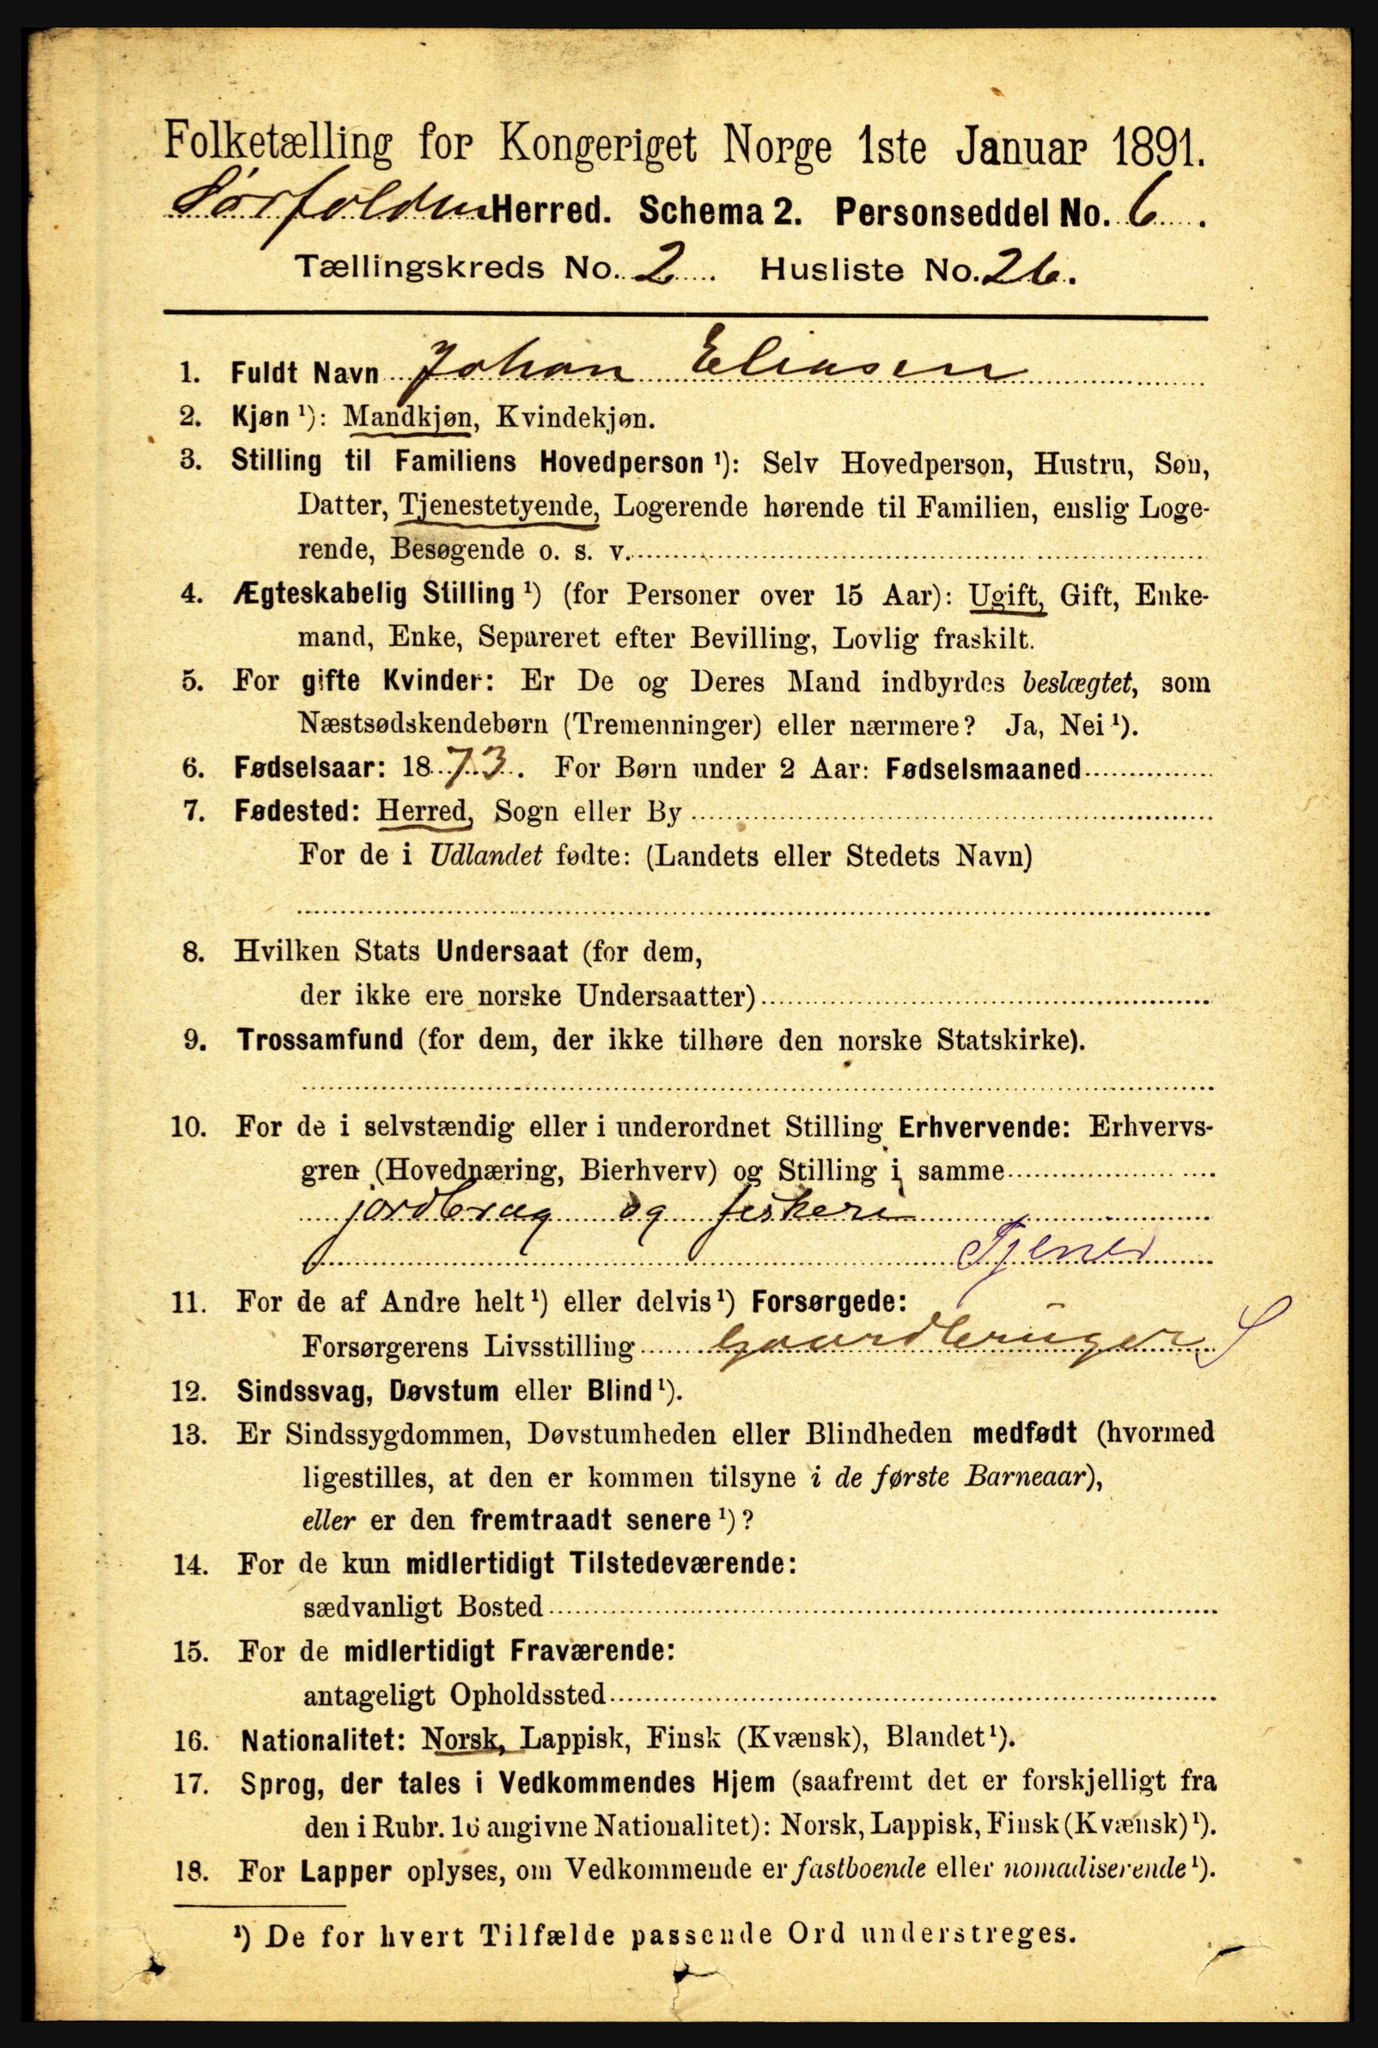 Folketælling for Kongeriget Norge 1ste Januar 1891.
Sørfolden Herred. Schema 2. Personseddel No. 6.
Tællingskreds No. 2. Husliste No. 26.
1. Fuldt Navn Johan Eliasen
2. Kjøn ¹): Mandkjøn, Kvindekjøn.
3. Stilling til Familiens Hovedperson ¹): Selv Hovedperson, Hustru, Søn,
Datter, Tjenestetyende, Logerende hørende til Familien, enslig Loge-
rende, Besøgende o. s. v.
4. Ægteskabelig Stilling ¹) (for Personer over 15 Aar): Ugift, Gift, Enke-
mand, Enke, Separeret efter Bevilling, Lovlig fraskilt.
5. For gifte Kvinder: Er De og Deres Mand indbyrdes beslægtet, som
Næstsødskendebørn (Tremenninger) eller nærmere? Ja, Nei ¹).
6. Fødselsaar: 1873. For Børn under 2 Aar: Fødselsmaaned
7. Fødested: Herred, Sogn eller By
For de i Udlandet fødte: (Landets eller Stedets Navn)
8. Hvilken Stats Undersaat (for dem,
der ikke ere norske Undersaatter)
9. Trossamfund (for dem, der ikke tilhøre den norske Statskirke).
10. For de i selvstændig eller i underordnet Stilling Erhvervende: Erhvervs-
gren (Hovednæring, Bierhverv) og Stilling i samme
jordbrug og fiskeri
Tjener
11. For de af Andre helt ¹) eller delvis ¹) Forsørgede:
Forsørgerens Livsstilling Gaardbruger S
12. Sindssvag, Døvstum eller Blind ¹).
13. Er Sindssygdommen, Døvstumheden eller Blindheden medfødt (hvormed
ligestilles, at den er kommen tilsyne i de første Barneaar),
eller er den fremtraadt senere ¹)?
14. For de kun midlertidigt Tilstedeværende:
sædvanligt Bosted
15. For de midlertidigt Fraværende:
antageligt Opholdssted
16. Nationalitet: Norsk, Lappisk, Finsk (Kvænsk), Blandet ¹).
17. Sprog, der tales i Vedkommendes Hjem (saafremt det er forskjelligt fra
den i Rubr. 16 angivne Nationalitet): Norsk, Lappisk, Finsk (Kvænsk) ¹).
18. For Lapper oplyses, om Vedkommende er fastboende eller nomadiserende ¹).
¹) De for hvert Tilfælde passende Ord understreges.